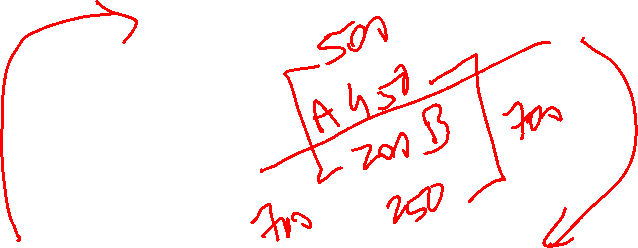 500
A 450
200 B 700
700 250